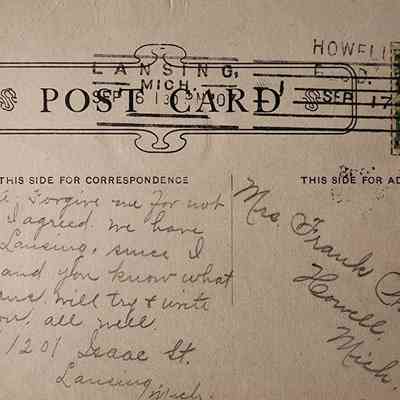 LANSING,
MICH.
SEP 16
HOWELL
SEP 17
POST CARD
THIS SIDE FOR CORRESPONDENCE
THIS SIDE FOR AD
Forgive me for not
I agreed. We have
Lansing, since I
and you know what
means. Will try & write
all well.
1201 Isaac St.
Lansing,
Mich.
Mrs. Frank
Howell
Mich.